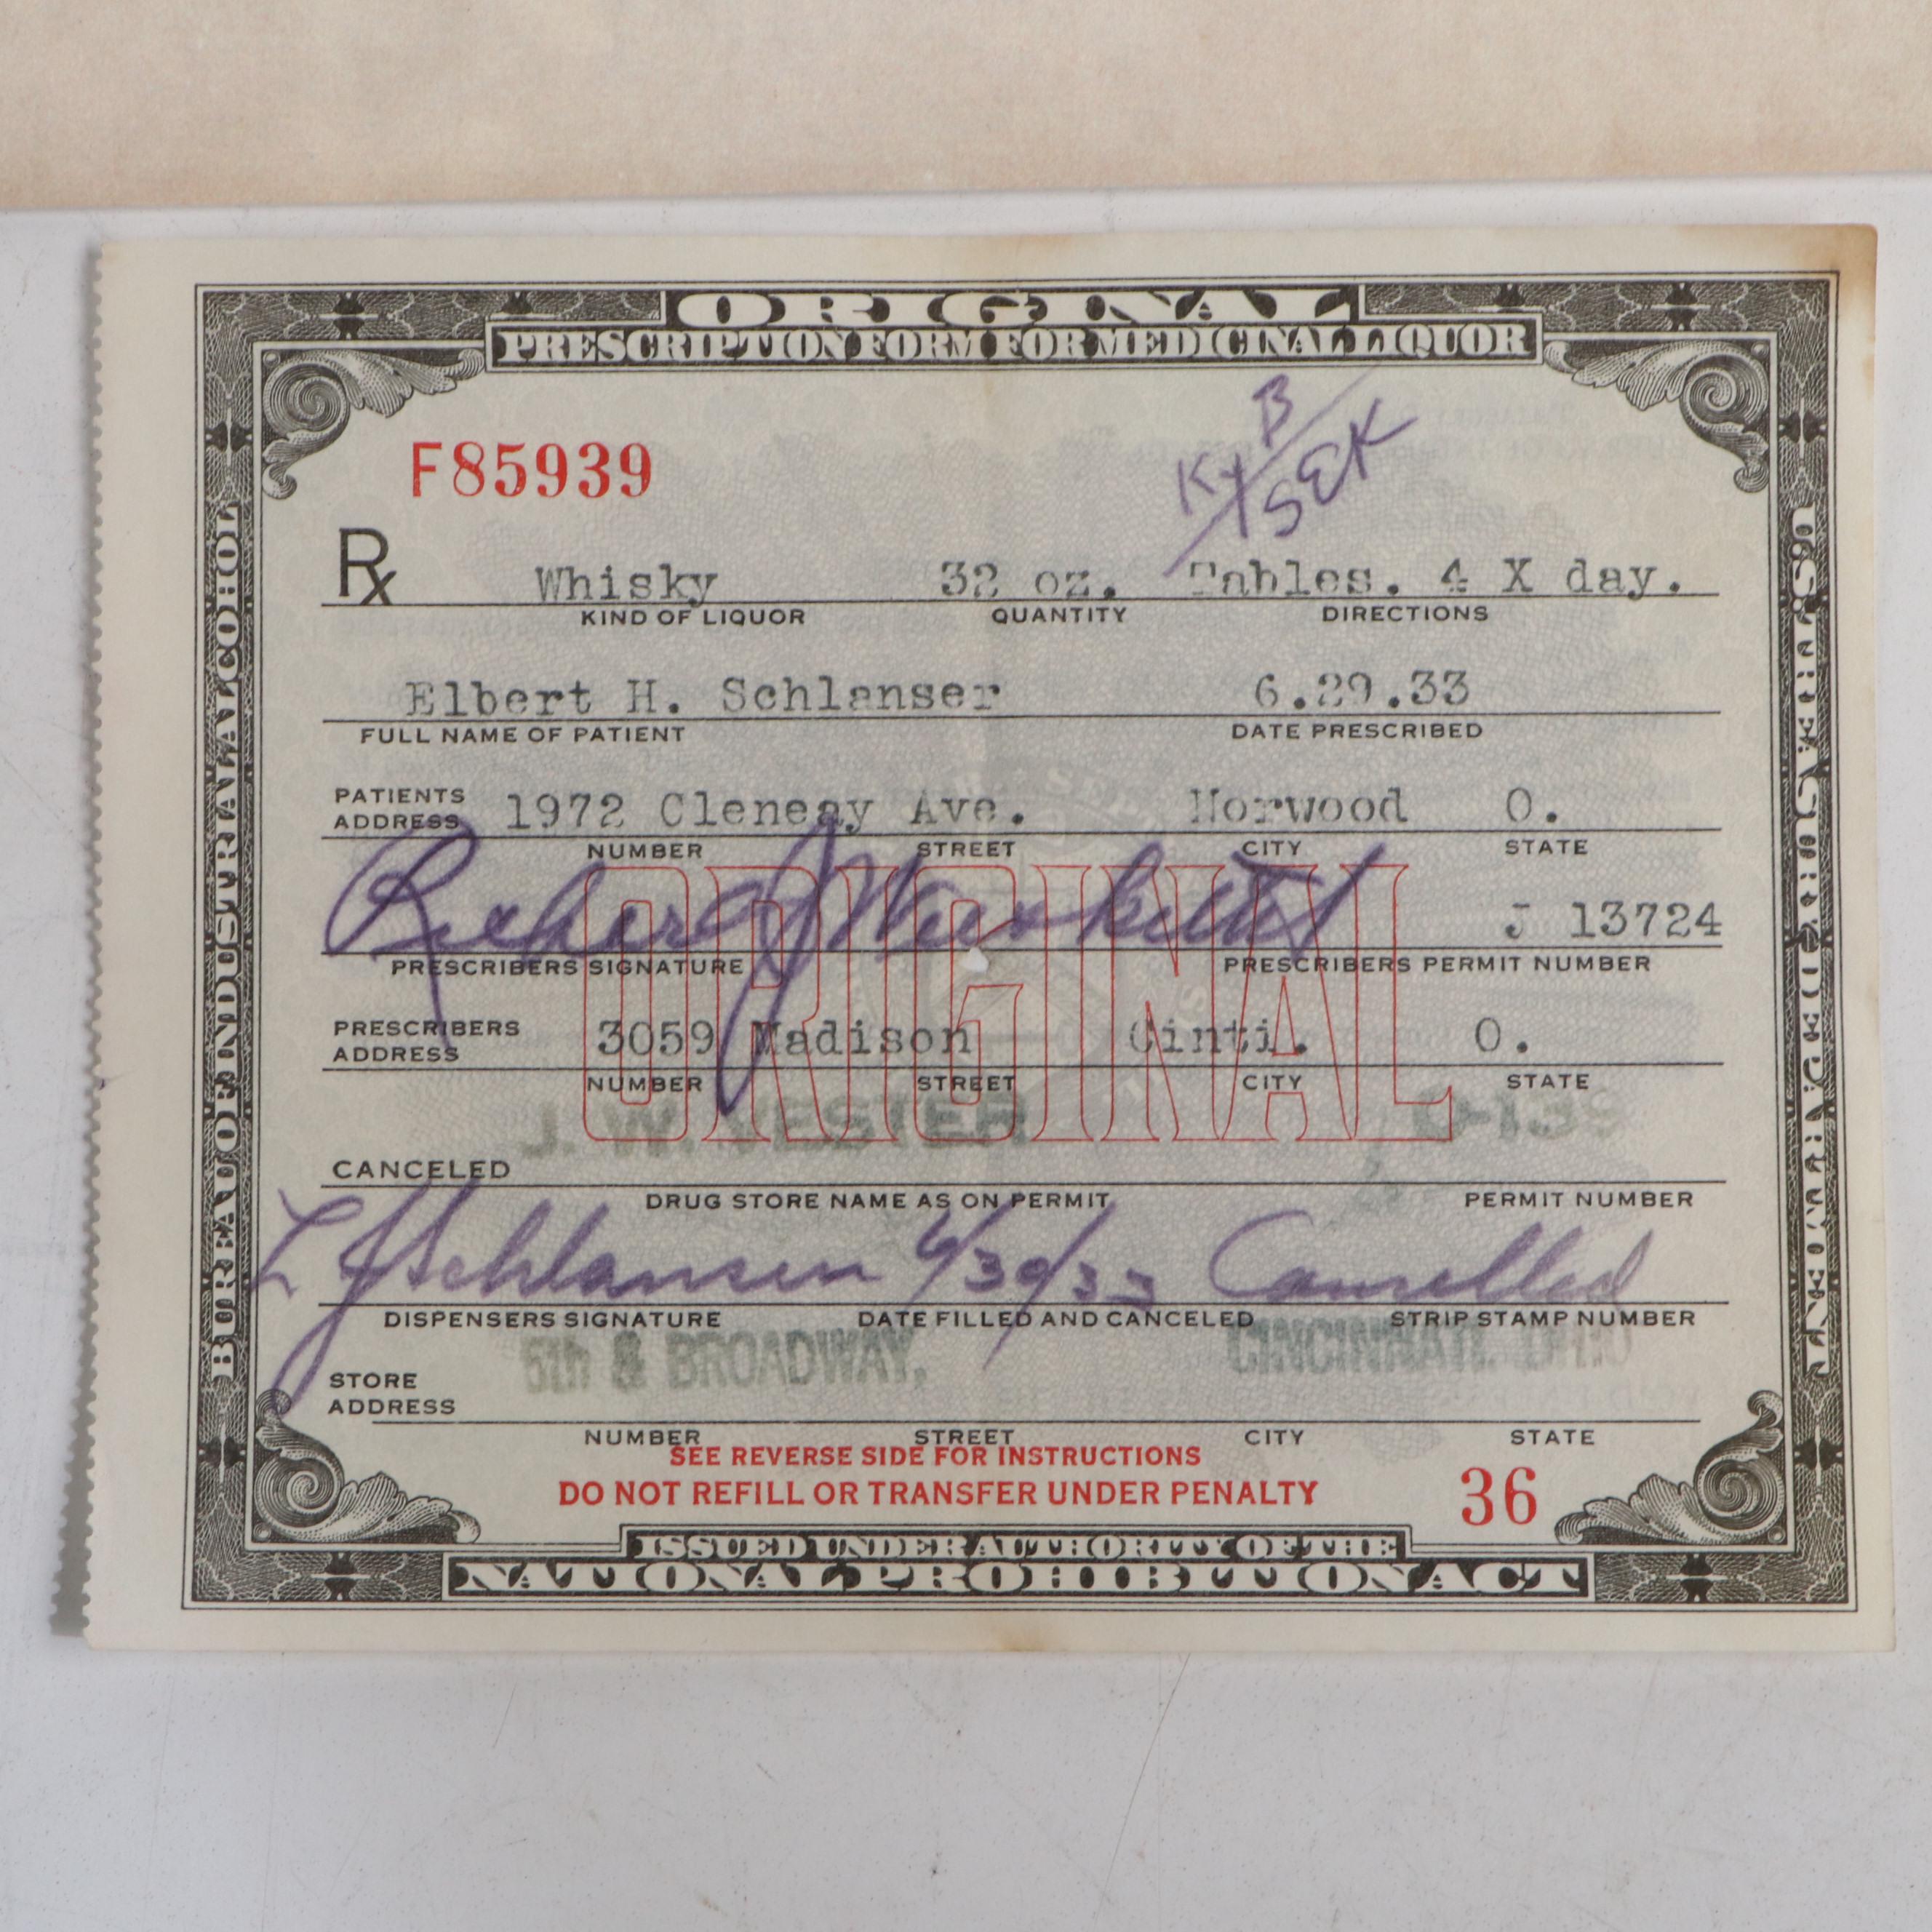 ORIGINAL
PRESCRIPTION FORM FOR MEDICINAL LIQUOR
BUREAU OF INDUSTRIAL ALCOHOL
U.S. TREASURY DEPARTMENT
F85939
Ky B
SEK
Rx Whisky 32 oz. Tables. 4 X day.
KIND OF LIQUOR QUANTITY DIRECTIONS
Elbert H. Schlanser 6.29.33
FULL NAME OF PATIENT DATE PRESCRIBED
PATIENTS ADDRESS 1972 Cleneay Ave. Norwood O.
NUMBER STREET CITY STATE
ORIGINAL
Richard J J 13724
PRESCRIBERS SIGNATURE PRESCRIBERS PERMIT NUMBER
PRESCRIBERS ADDRESS 3059 Madison Cinti. O.
NUMBER STREET CITY STATE
J. W.
CANCELED
DRUG STORE NAME AS ON PERMIT PERMIT NUMBER
6/30/33 Cancelled
DISPENSERS SIGNATURE DATE FILLED AND CANCELED STRIP STAMP NUMBER
5th & BROADWAY, CINCINNATI, OHIO
STORE ADDRESS
NUMBER STREET CITY STATE
SEE REVERSE SIDE FOR INSTRUCTIONS
DO NOT REFILL OR TRANSFER UNDER PENALTY
36
ISSUED UNDER AUTHORITY OF THE
NATIONAL PROHIBITION ACT